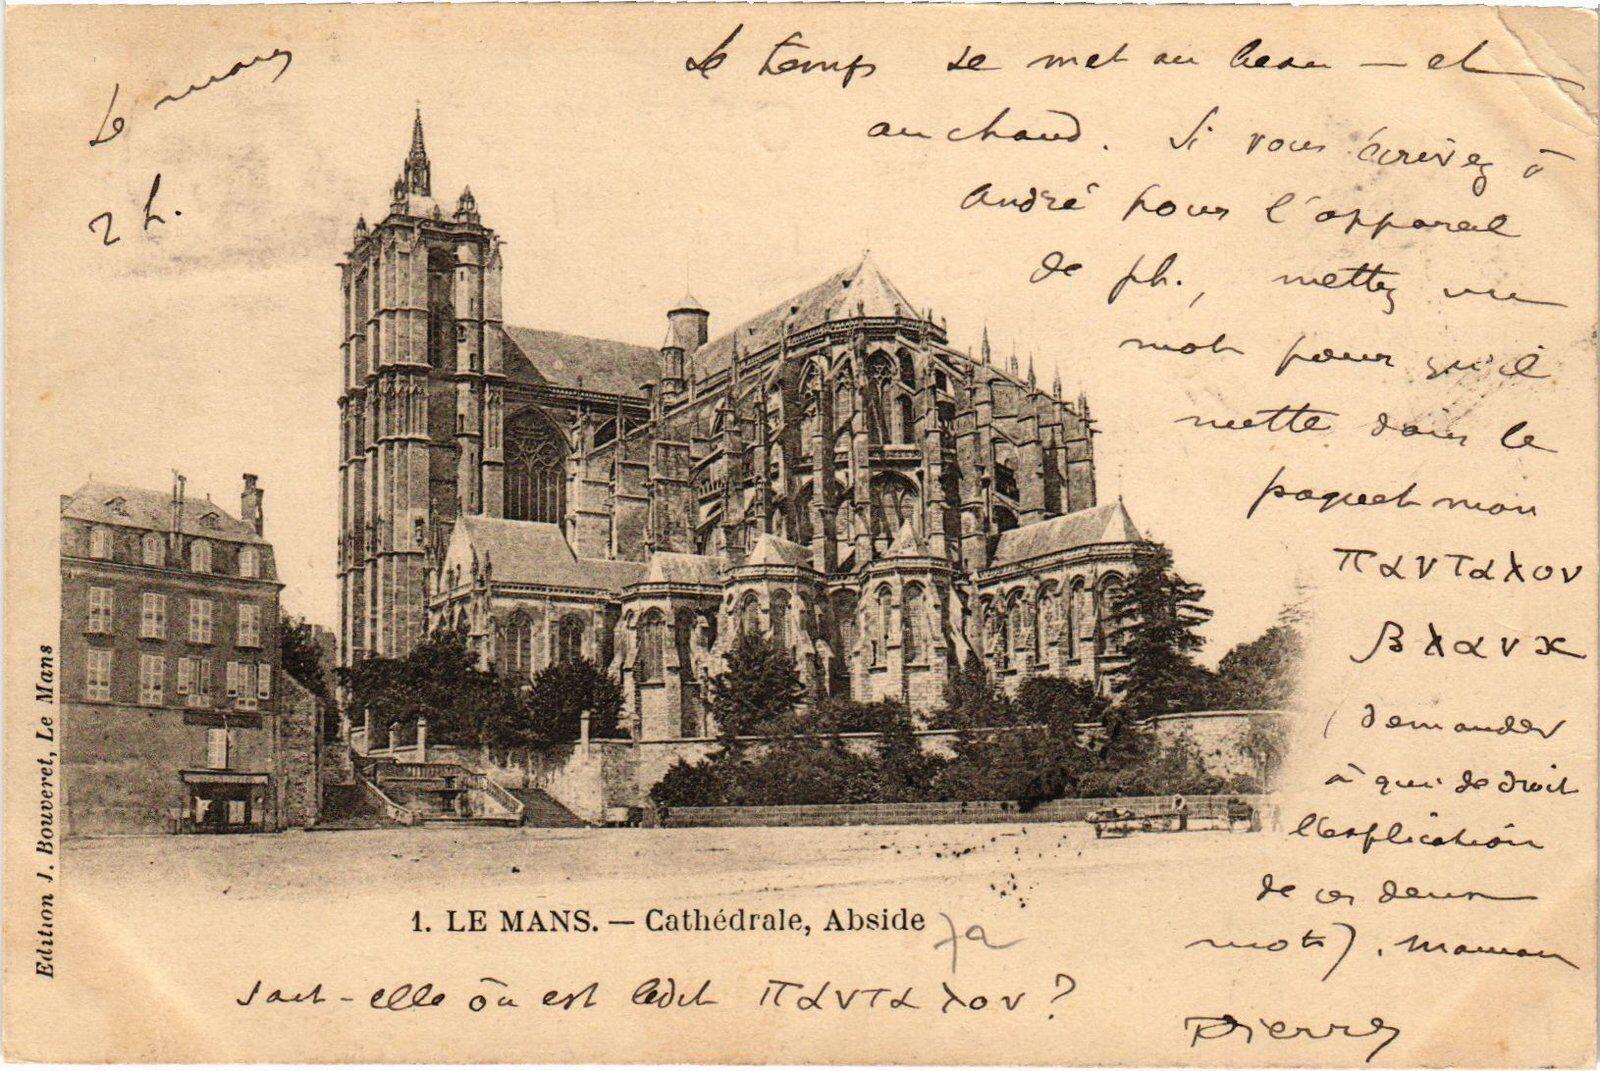 Le Mans
2 h.
Le temps se met au beau – et
au chaud. Si vous écrivez à
André pour l'appareil
de ph., mettez un
mot pour qu'il
mette dans le
paquet mon
πανταλον
βλανκ
(demander
à qui de droit
l'explication
de ces deux
mots). Maman
sait-elle où est ledit πανταλον?
Pierre
1. LE MANS. — Cathédrale, Abside
Edition J. Bouveret, Le Mans